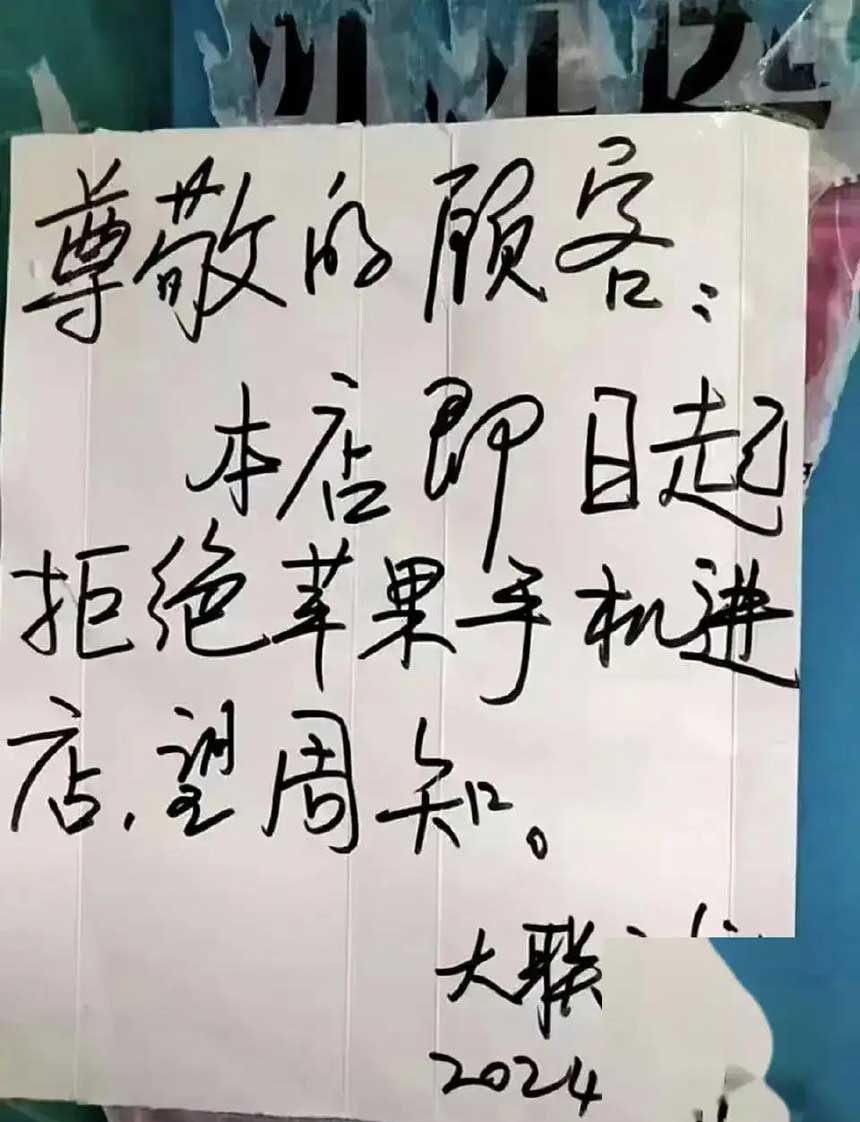 尊敬的顾客：
本店即日起
拒绝苹果手机进
店，望周知。
大联
2024